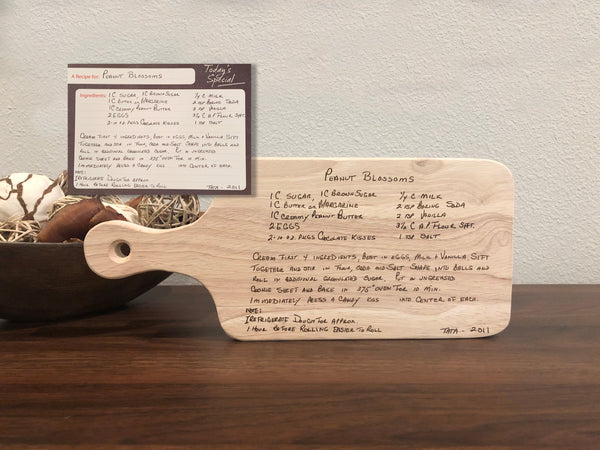 Today's
Special
A Recipe for: PEANUT BLOSSOMS
Ingredients: 1 C SUGAR, 1C BROWN SUGAR 1/4 C. MILK
1 C BUTTER OR MARGARINE 2 TSP BAKING SODA
1C CREAMY PEANUT BUTTER 2 TSP VANILLA
2 EGGS 3½ C A.P. FLOUR SIFT.
2-10 OZ. PKGS CHOCOLATE KISSES 1 TSP SALT
CREAM FIRST 4 INGREDIENTS, BEAT IN EGGS, MILK + VANILLA SIFT
TOGETHER AND STIR IN FLOUR, SODA AND SALT SHAPE INTO BALLS AND
ROLL IN ADDITIONAL GRANULATED SUGAR. PUT ON UNGREASED
COOKIE SHEET AND BAKE IN 375° OVEN FOR 10 MIN.
IMMEDIATELY PRESS A CANDY KISS INTO CENTER OF EACH.
NOTE:
REFRIGERATE DOUGH FOR APPROX.
1 HOUR BEFORE ROLLING EASIER TO ROLL TATA - 2011
PEANUT BLOSSOMS
1 C SUGAR, 1C BROWN SUGAR 1/4 C. MILK
1 C BUTTER OR MARGARINE 2 TSP BAKING SODA
1C CREAMY PEANUT BUTTER 2 TSP VANILLA
2 EGGS 3½ C A.P. FLOUR SIFT.
2-10 OZ. PKGS CHOCOLATE KISSES 1 TSP SALT
CREAM FIRST 4 INGREDIENTS, BEAT IN EGGS, MILK + VANILLA SIFT
TOGETHER AND STIR IN FLOUR, SODA AND SALT SHAPE INTO BALLS AND
ROLL IN ADDITIONAL GRANULATED SUGAR. PUT ON UNGREASED
COOKIE SHEET AND BAKE IN 375° OVEN FOR 10 MIN.
IMMEDIATELY PRESS A CANDY KISS INTO CENTER OF EACH.
NOTE:
REFRIGERATE DOUGH FOR APPROX.
1 HOUR BEFORE ROLLING EASIER TO ROLL TATA - 2011